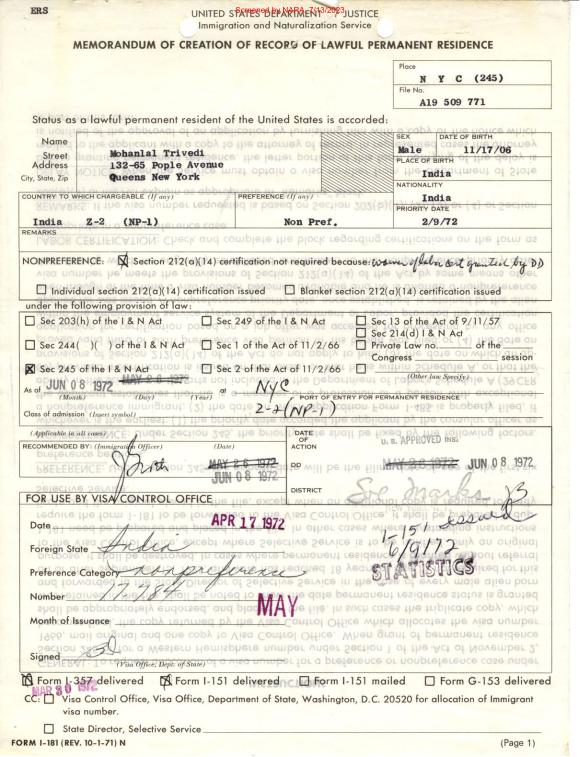 ERS
UNITED STATES DEPARTMENT OF JUSTICE
Screened by NARA, 7/13/2023
Immigration and Naturalization Service
MEMORANDUM OF CREATION OF RECORD OF LAWFUL PERMANENT RESIDENCE
Place
N Y C (245)
File No.
A19 509 771
Status as a lawful permanent resident of the United States is accorded:
Name
Street Address
City, State, Zip
Mohanlal Trivedi
132-65 Pople Avenue
Queens New York
SEX
Male
DATE OF BIRTH
11/17/06
PLACE OF BIRTH
India
NATIONALITY
India
COUNTRY TO WHICH CHARGEABLE (If any)
India Z-2 (NP-1)
PREFERENCE (If any)
Non Pref.
PRIORITY DATE
2/9/72
REMARKS
NONPREFERENCE: X Section 212(a)(14) certification not required because: waiver of labor cert granted by DD
Individual section 212(a)(14) certification issued
Blanket section 212(a)(14) certification issued
under the following provision of law:
Sec 203(h) of the I & N Act
Sec 249 of the I & N Act
Sec 13 of the Act of 9/11/57
Sec 214(d) I & N Act
Sec 244( )( ) of the I & N Act
Sec 1 of the Act of 11/2/66
Private Law no. of the
Congress session
X Sec 245 of the I & N Act
Sec 2 of the Act of 11/2/66
(Other law Specify)
As of JUN 08 1972 MAY 26 1972 at NYC
(Month) (Day) (Year)
PORT OF ENTRY FOR PERMANENT RESIDENCE
Class of admission (Insert symbol) Z-2 (NP-1)
(Applicable in all cases)
RECOMMENDED BY: (Immigration Officer) (Date)
MAY 26 1972
JUN 08 1972
DATE OF ACTION
U. S. APPROVED INS.
DD
MAY 26 1972 JUN 08 1972
DISTRICT
FOR USE BY VISA CONTROL OFFICE
I-151 Issued
6/9/72
STATISTICS
Date APR 17 1972
Foreign State India
Preference Category nonpreference
Number 17,984
Month of Issuance MAY
Signed
(Visa Office, Dept. of State)
X Form I-357 delivered
X Form I-151 delivered
Form I-151 mailed
Form G-153 delivered
MAR 30 1972
CC: Visa Control Office, Visa Office, Department of State, Washington, D.C. 20520 for allocation of Immigrant
visa number.
State Director, Selective Service
FORM I-181 (REV. 10-1-71) N
(Page 1)